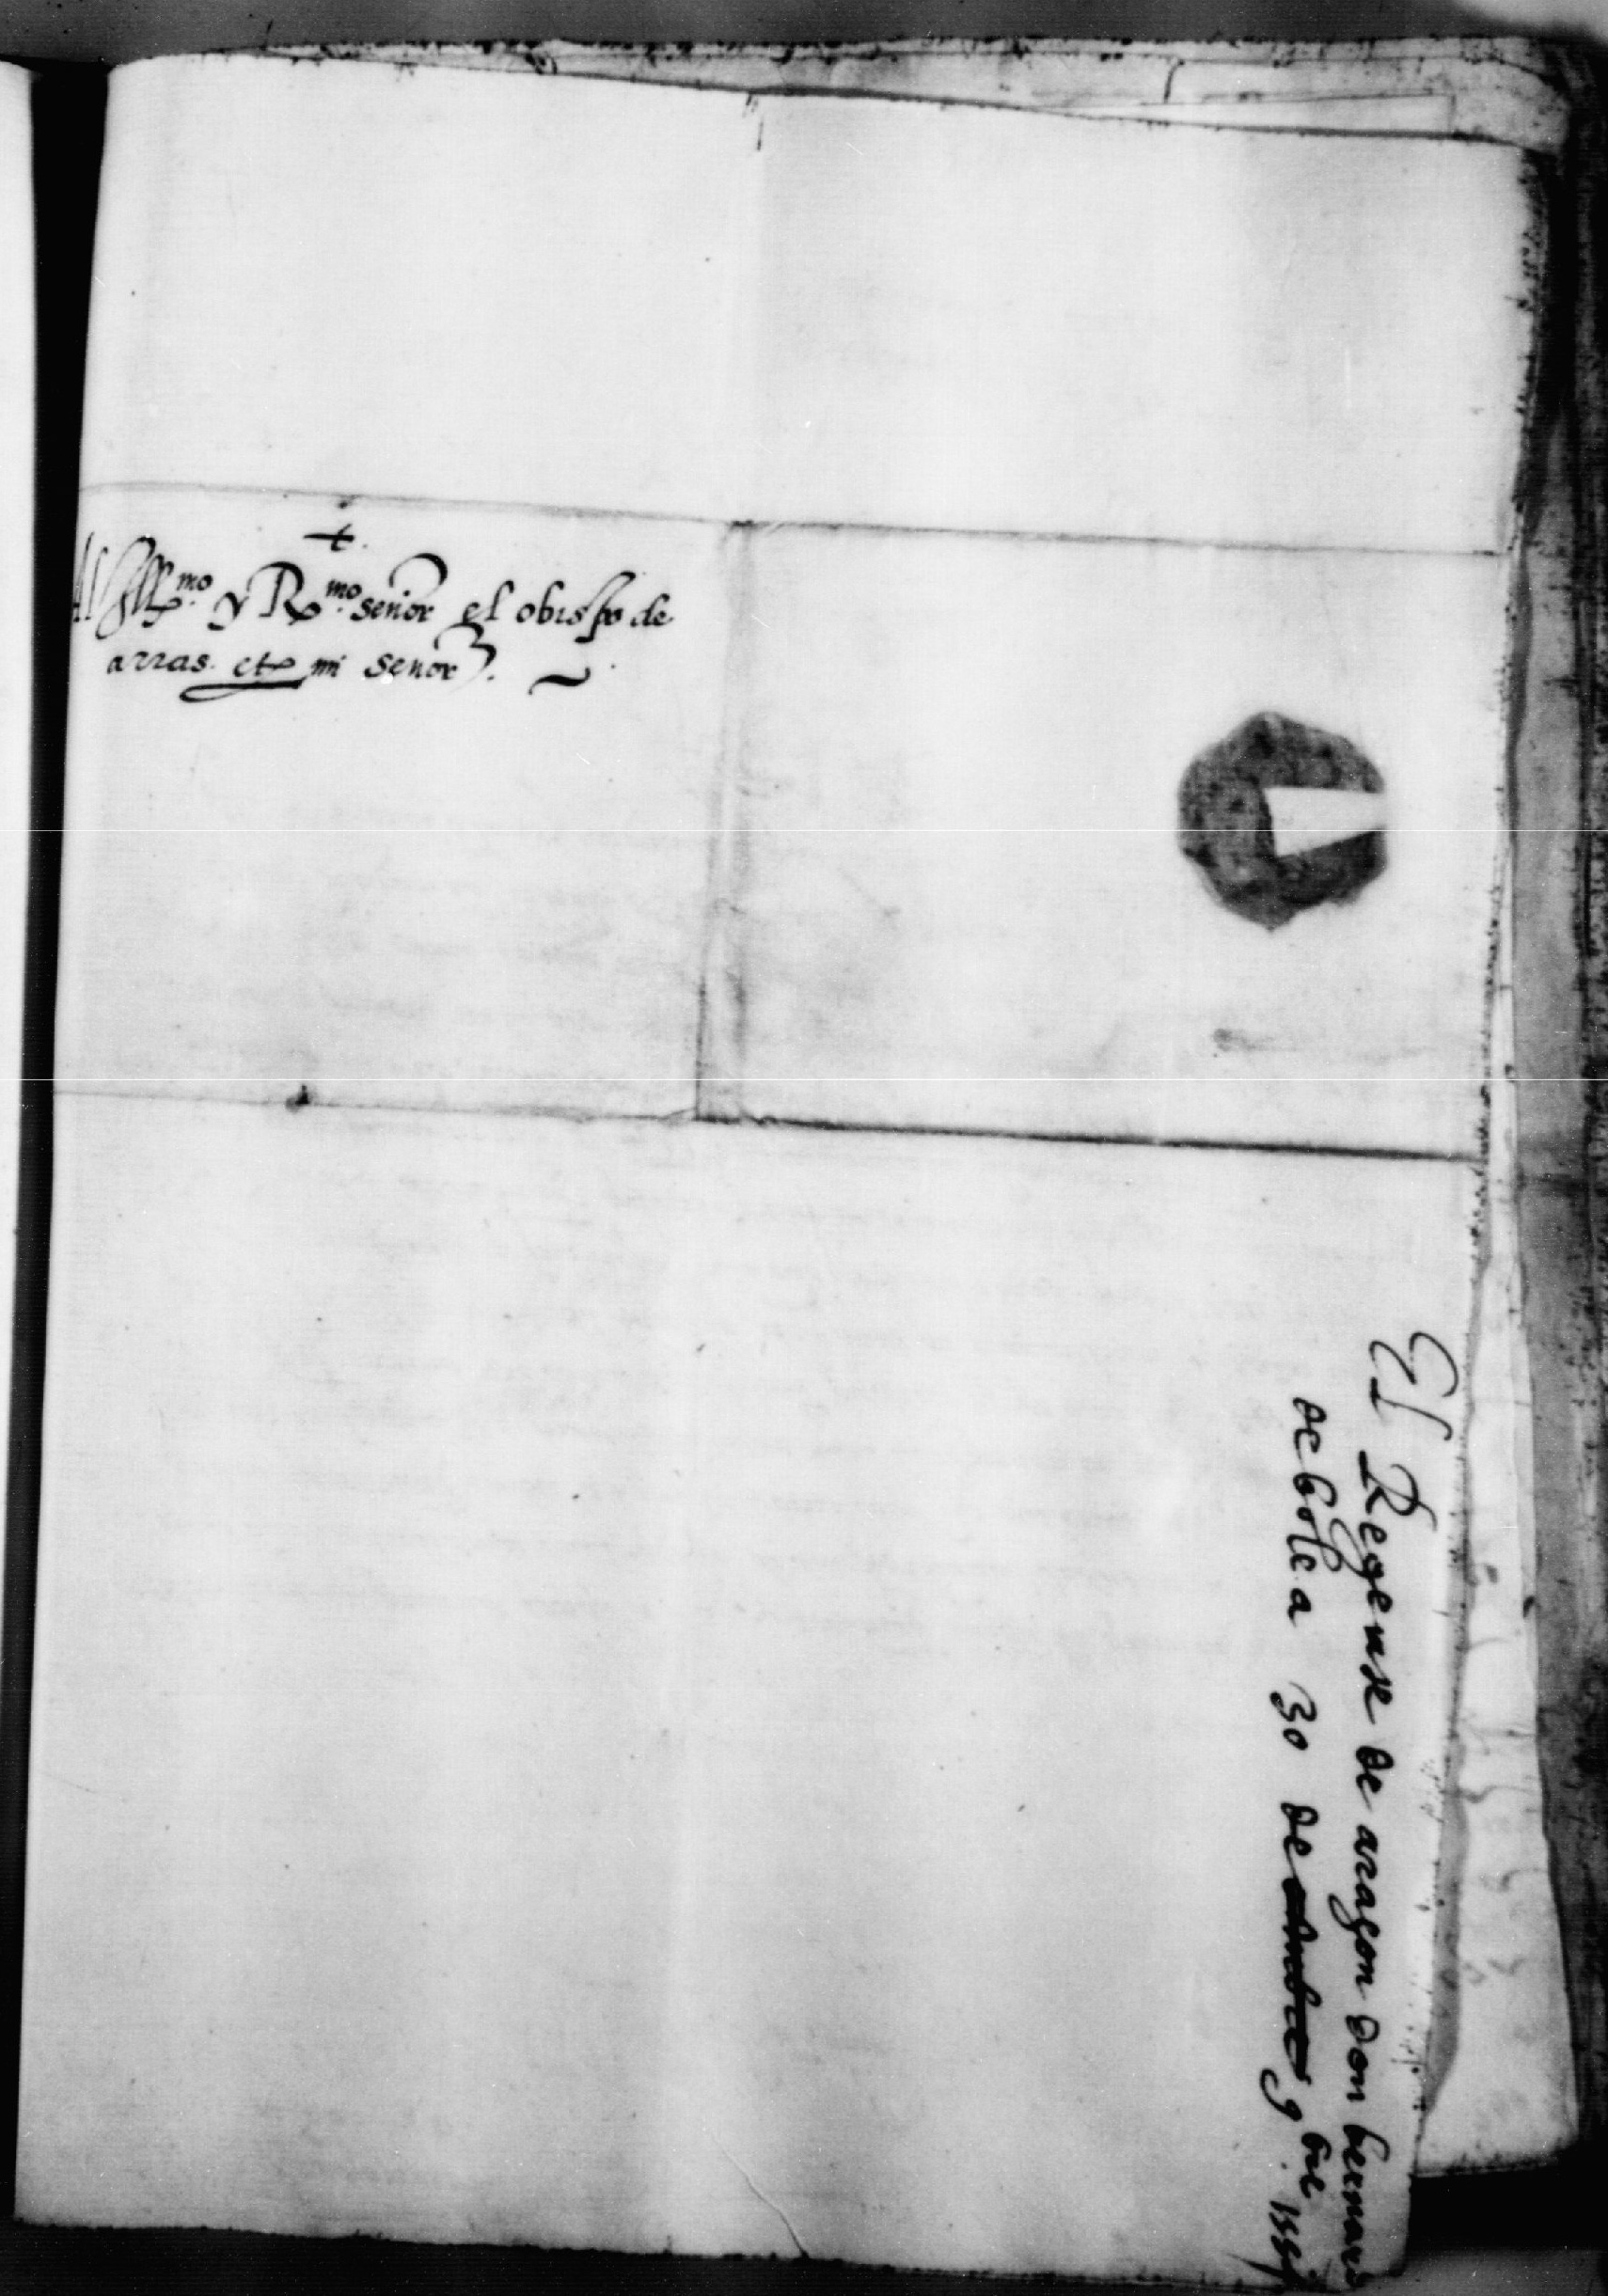 +
Al Ill.mo y R.mo señor el obispo de
arras. etc mi señor.
El Regente de aragon don bernard
de bolea 30 de 9bre